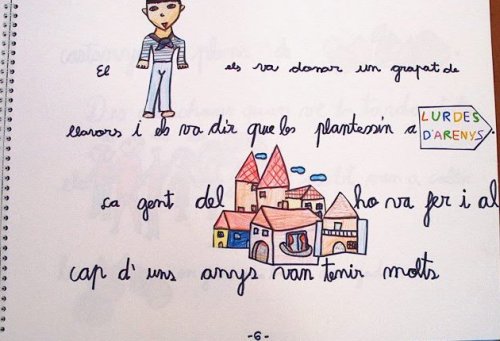 El els va donar un grapat de
llavors i els va dir que les plantessin a LURDES D'ARENYS.
La gent del ho va fer i al
cap d'uns anys van tenir molts
-6-